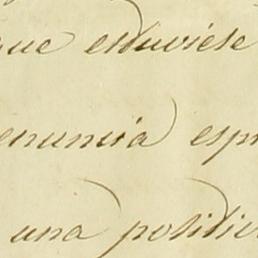 que estuviése
enuncia esp
una positiv